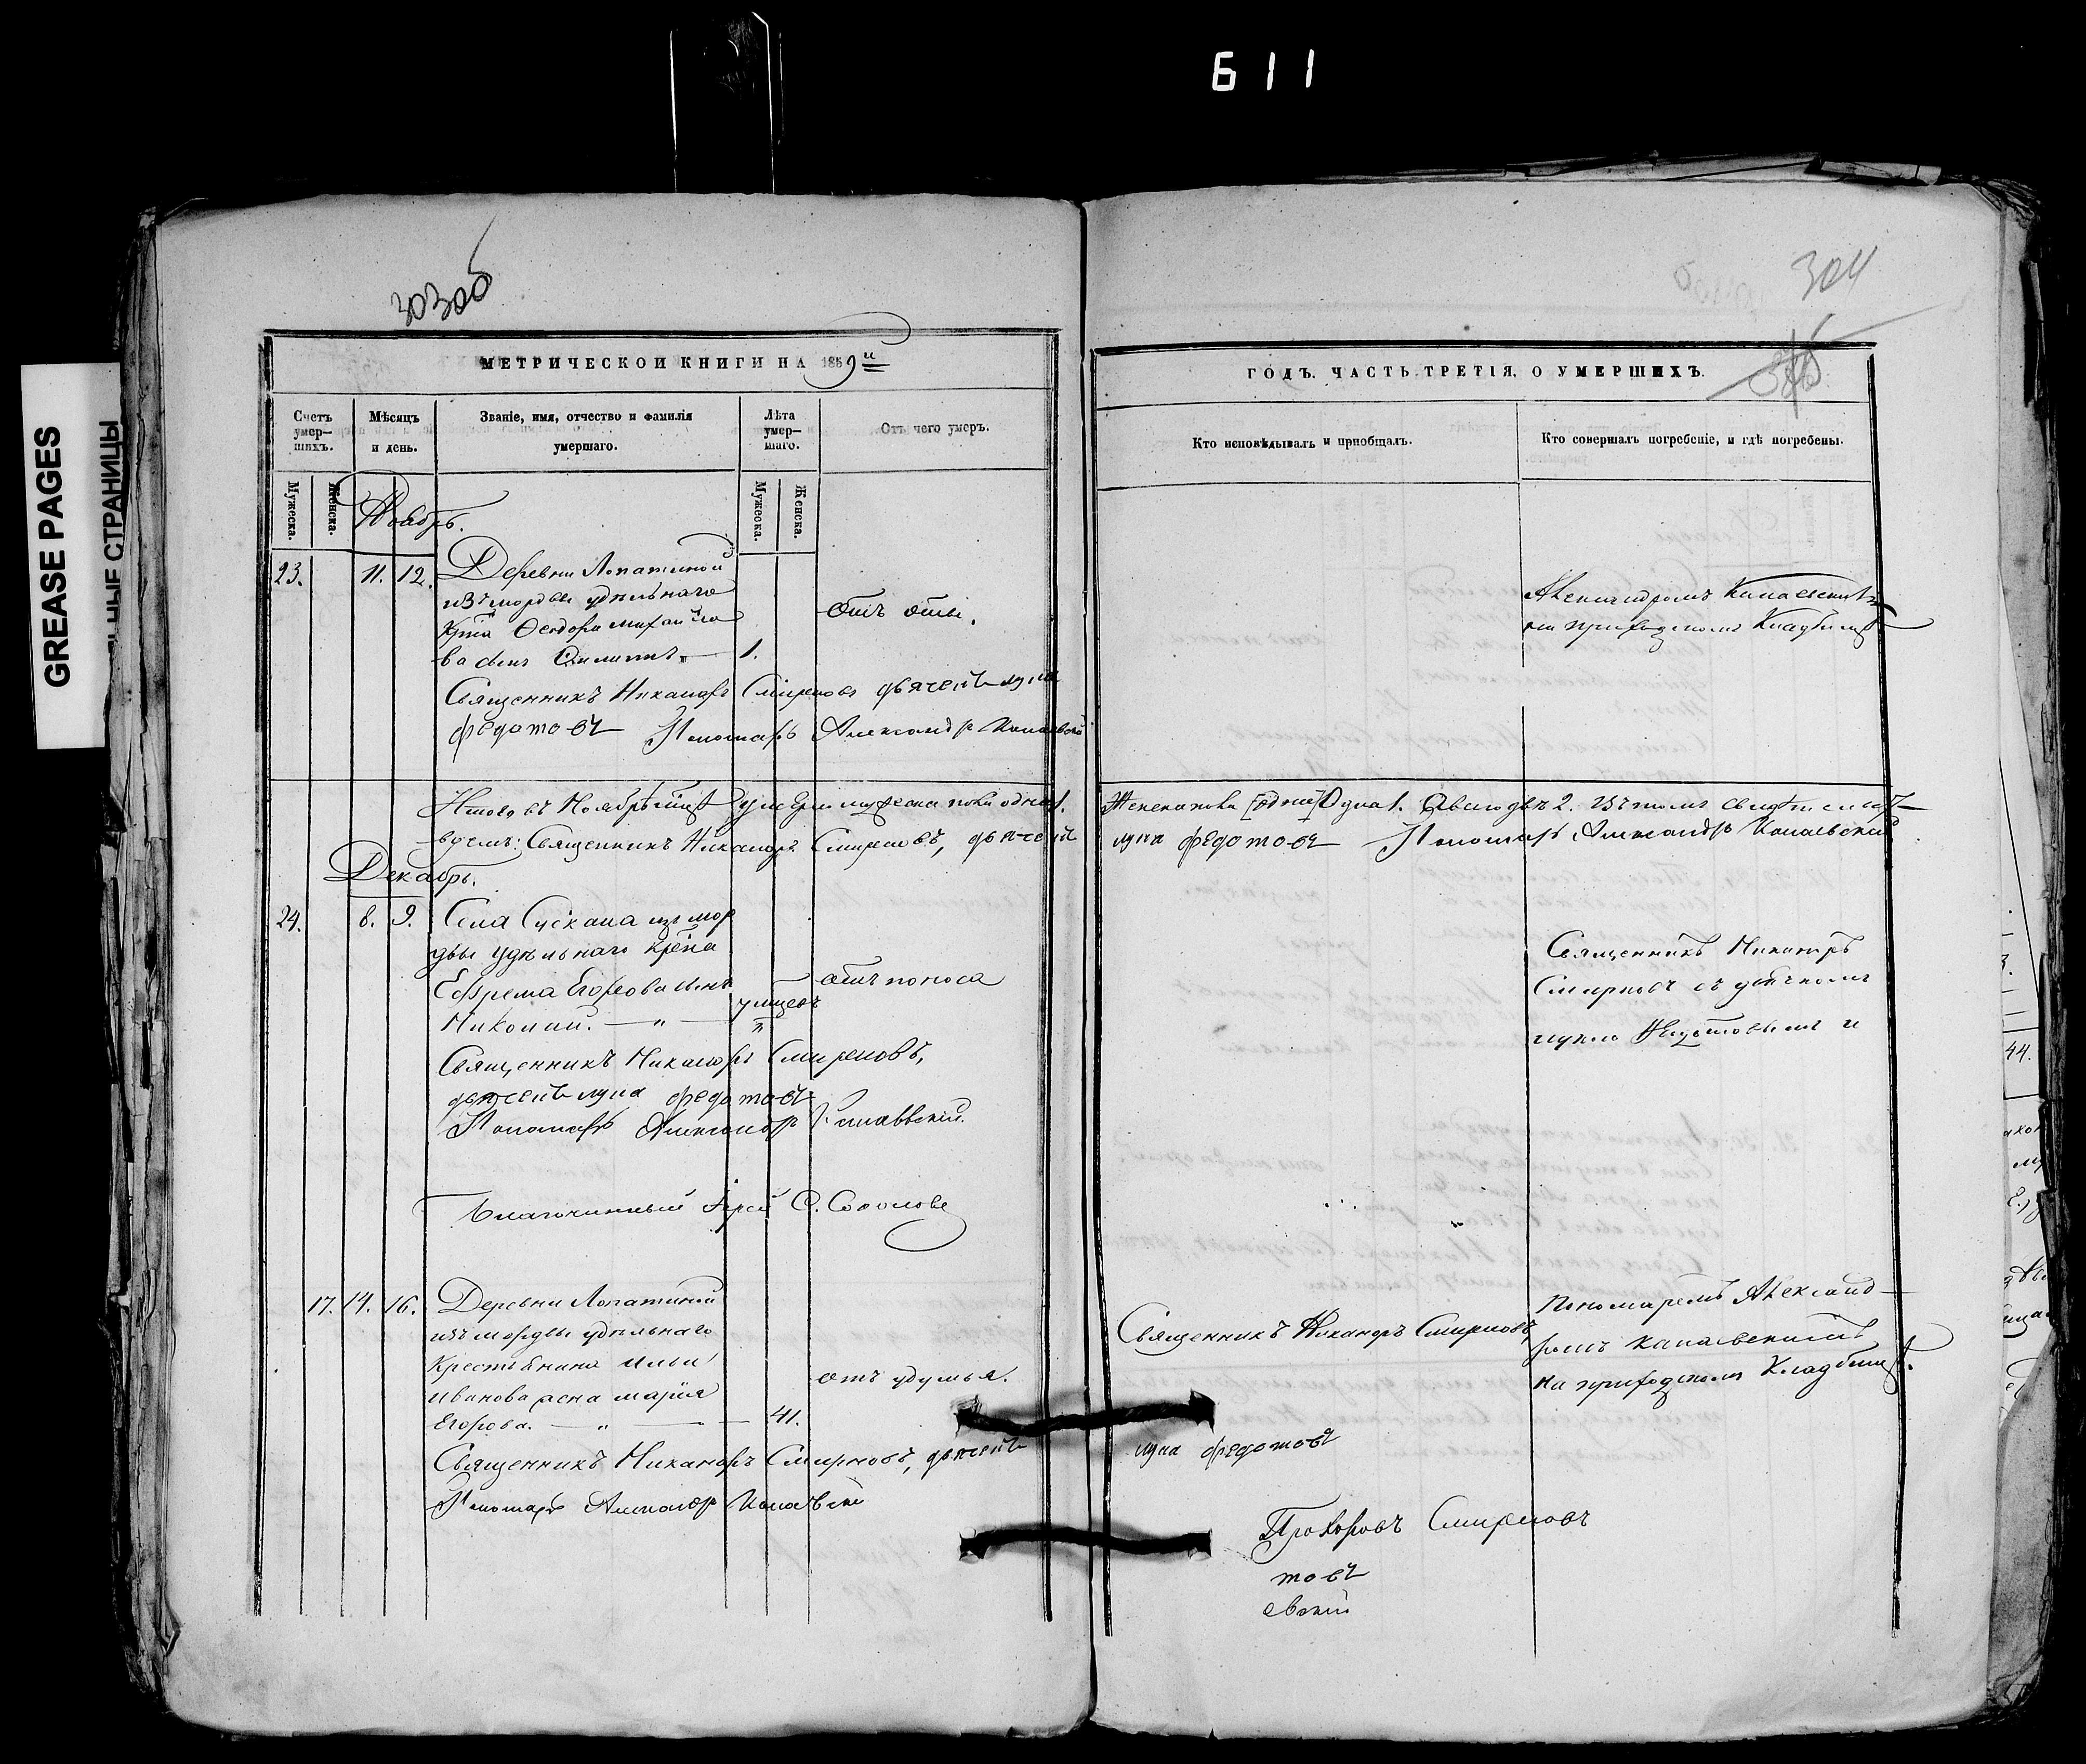 611
GREASE PAGES
СТРАНИЦЫ
303об
304
МЕТРИЧЕСКОЙ КНИГИ НА 1859й
ГОДЪ. ЧАСТЬ ТРЕТІЯ, О УМЕРШИХЪ.
Счетъ умер-шихъ.
Мѣсяцъ и день.
Званіе, имя, отчество и фамилія умершаго.
Лѣта умер-шаго.
Отъ чего умеръ.
Кто исповѣдывалъ и пріобщалъ.
Кто совершалъ погребеніе, и гдѣ погребены.
Мужеска.
Женска.
Мужеска.
Женска.
Ноябрь.
23. 11. 12. Деревни Лопатиной
изъ мордвы удѣльнаго
Кр҃на Ѳеодора Михайло
ва сынъ Филиппъ. — 1.
отъ оспы.
Александромъ Канаевскимъ
на приходскомъ Кладбищѣ
Священникъ Никаноръ Смирновъ дьячекъ Лука
Федотовъ Пономарь Александръ Канаевскій
Итого въ Ноябрѣ м҃цѣ умерло мужеска пола одинъ 1.
Женска пола [одна] Одна 1. Обаго двѣ 2. Въ томъ свидѣтельст-
вуемъ: Священникъ Никаноръ Смирновъ, дьячекъ
Лука Федотовъ Пономарь Александръ Канаевскій
Декабрь.
24. 8. 9. Села Сускана изъ мор
двы удѣльнаго кр҃на
Ефрема Егорова сынъ
Николай. — „ —
отъ поноса
Священникъ Никаноръ
Смирновъ съ дьячкомъ
Лукою Федотовымъ и
Священникъ Никаноръ Смирновъ,
дьячекъ Лука Федотовъ
Пономарь Александръ Канаевскій.
Благочинный Іерей С. Соколовъ
17. 14. 16. Деревни Лопатиной
изъ мордвы удѣльнаго
Крестьянина Ильи
Иванова жена Марія
Егорова. — „ — 41.
отъ удушья.
Священникъ Никаноръ Смирновъ,
Пономаремъ Александ-
ромъ Канаевскимъ
на приходскомъ Кладбищѣ.
Священникъ Никаноръ Смирновъ, дьячекъ
Лука Федотовъ
Пономарь Александръ Канаевскій
Прохоровъ Смирновъ
товъ
евскій